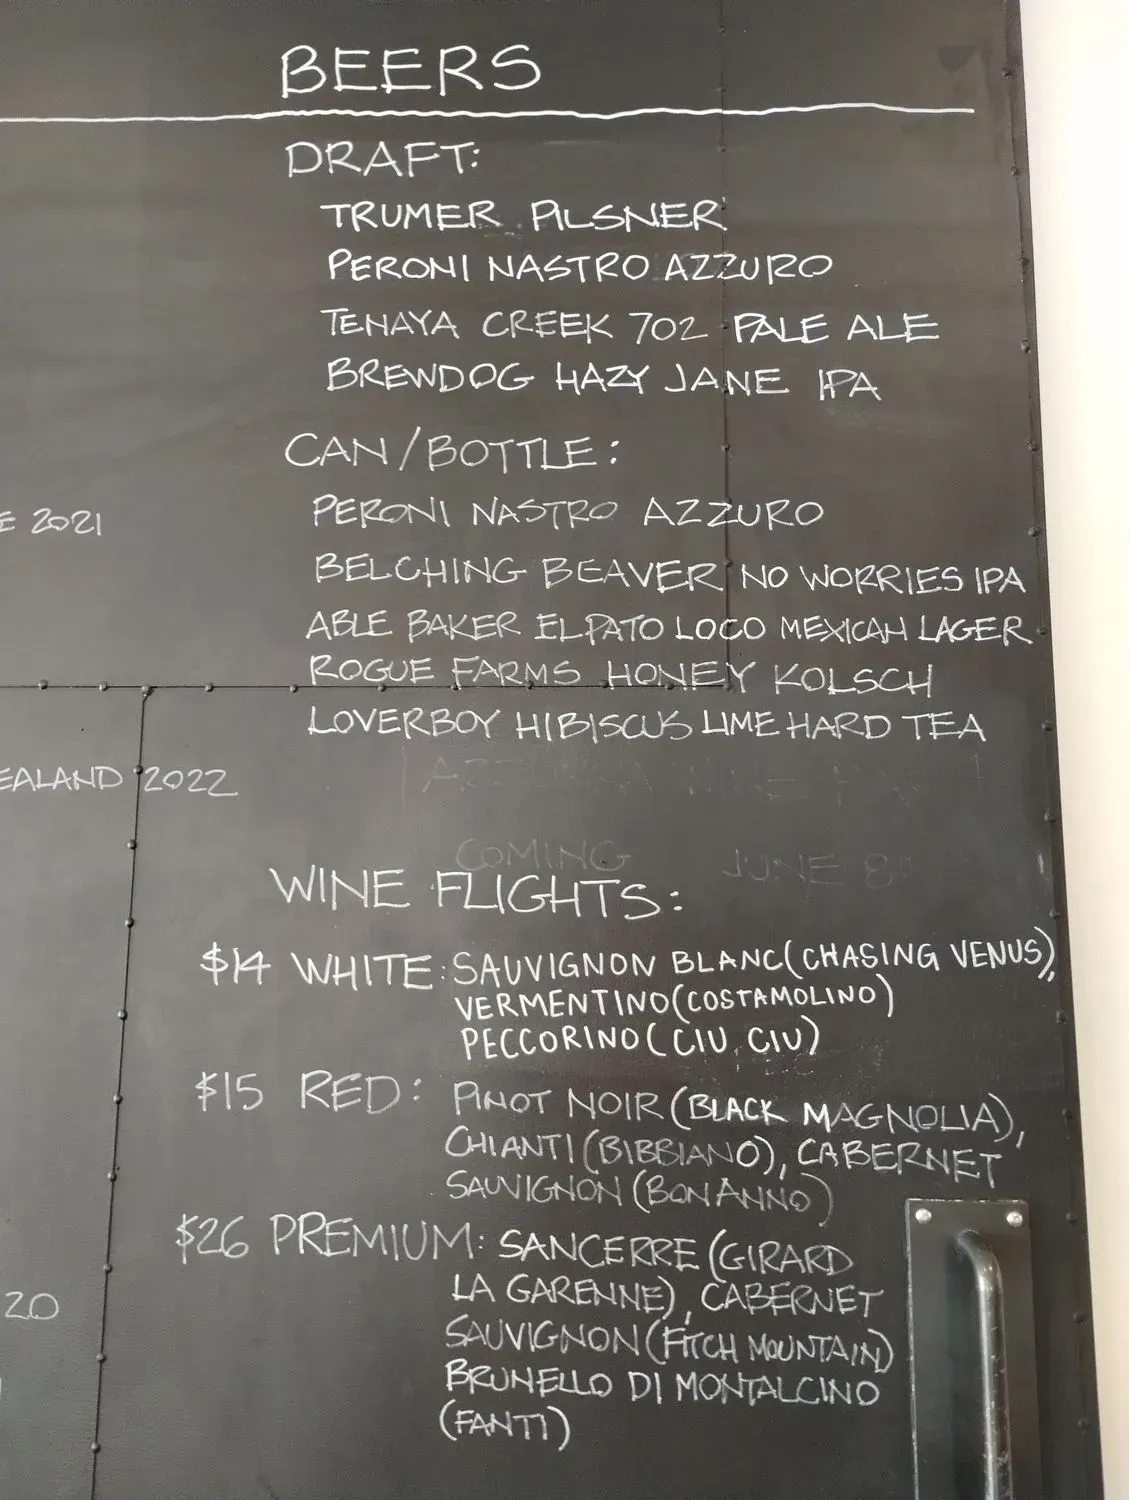 BEERS
DRAFT:
TRUMER PILSNER
PERONI NASTRO AZZURO
TENAYA CREEK 702 PALE ALE
BREWDOG HAZY JANE IPA
CAN/BOTTLE:
PERONI NASTRO AZZURO
BELCHING BEAVER NO WORRIES IPA
ABLE BAKER EL PATO LOCO MEXICAN LAGER
ROGUE FARMS HONEY KOLSCH
LOVERBOY HIBISCUS LIME HARD TEA
COMING JUNE
WINE FLIGHTS:
$14 WHITE: SAUVIGNON BLANC (CHASING VENUS),
VERMENTINO (COSTAMOLINO)
PECCORINO (CIU CIU)
$15 RED: PINOT NOIR (BLACK MAGNOLIA),
CHIANTI (BIBBIANO), CABERNET
SAUVIGNON (BONANNO)
$26 PREMIUM: SANCERRE (GIRARD
LA GARENNE), CABERNET
SAUVIGNON (FITCH MOUNTAIN)
BRUNELLO DI MONTALCINO
(FANTI)
E 2021
EALAND 2022
20